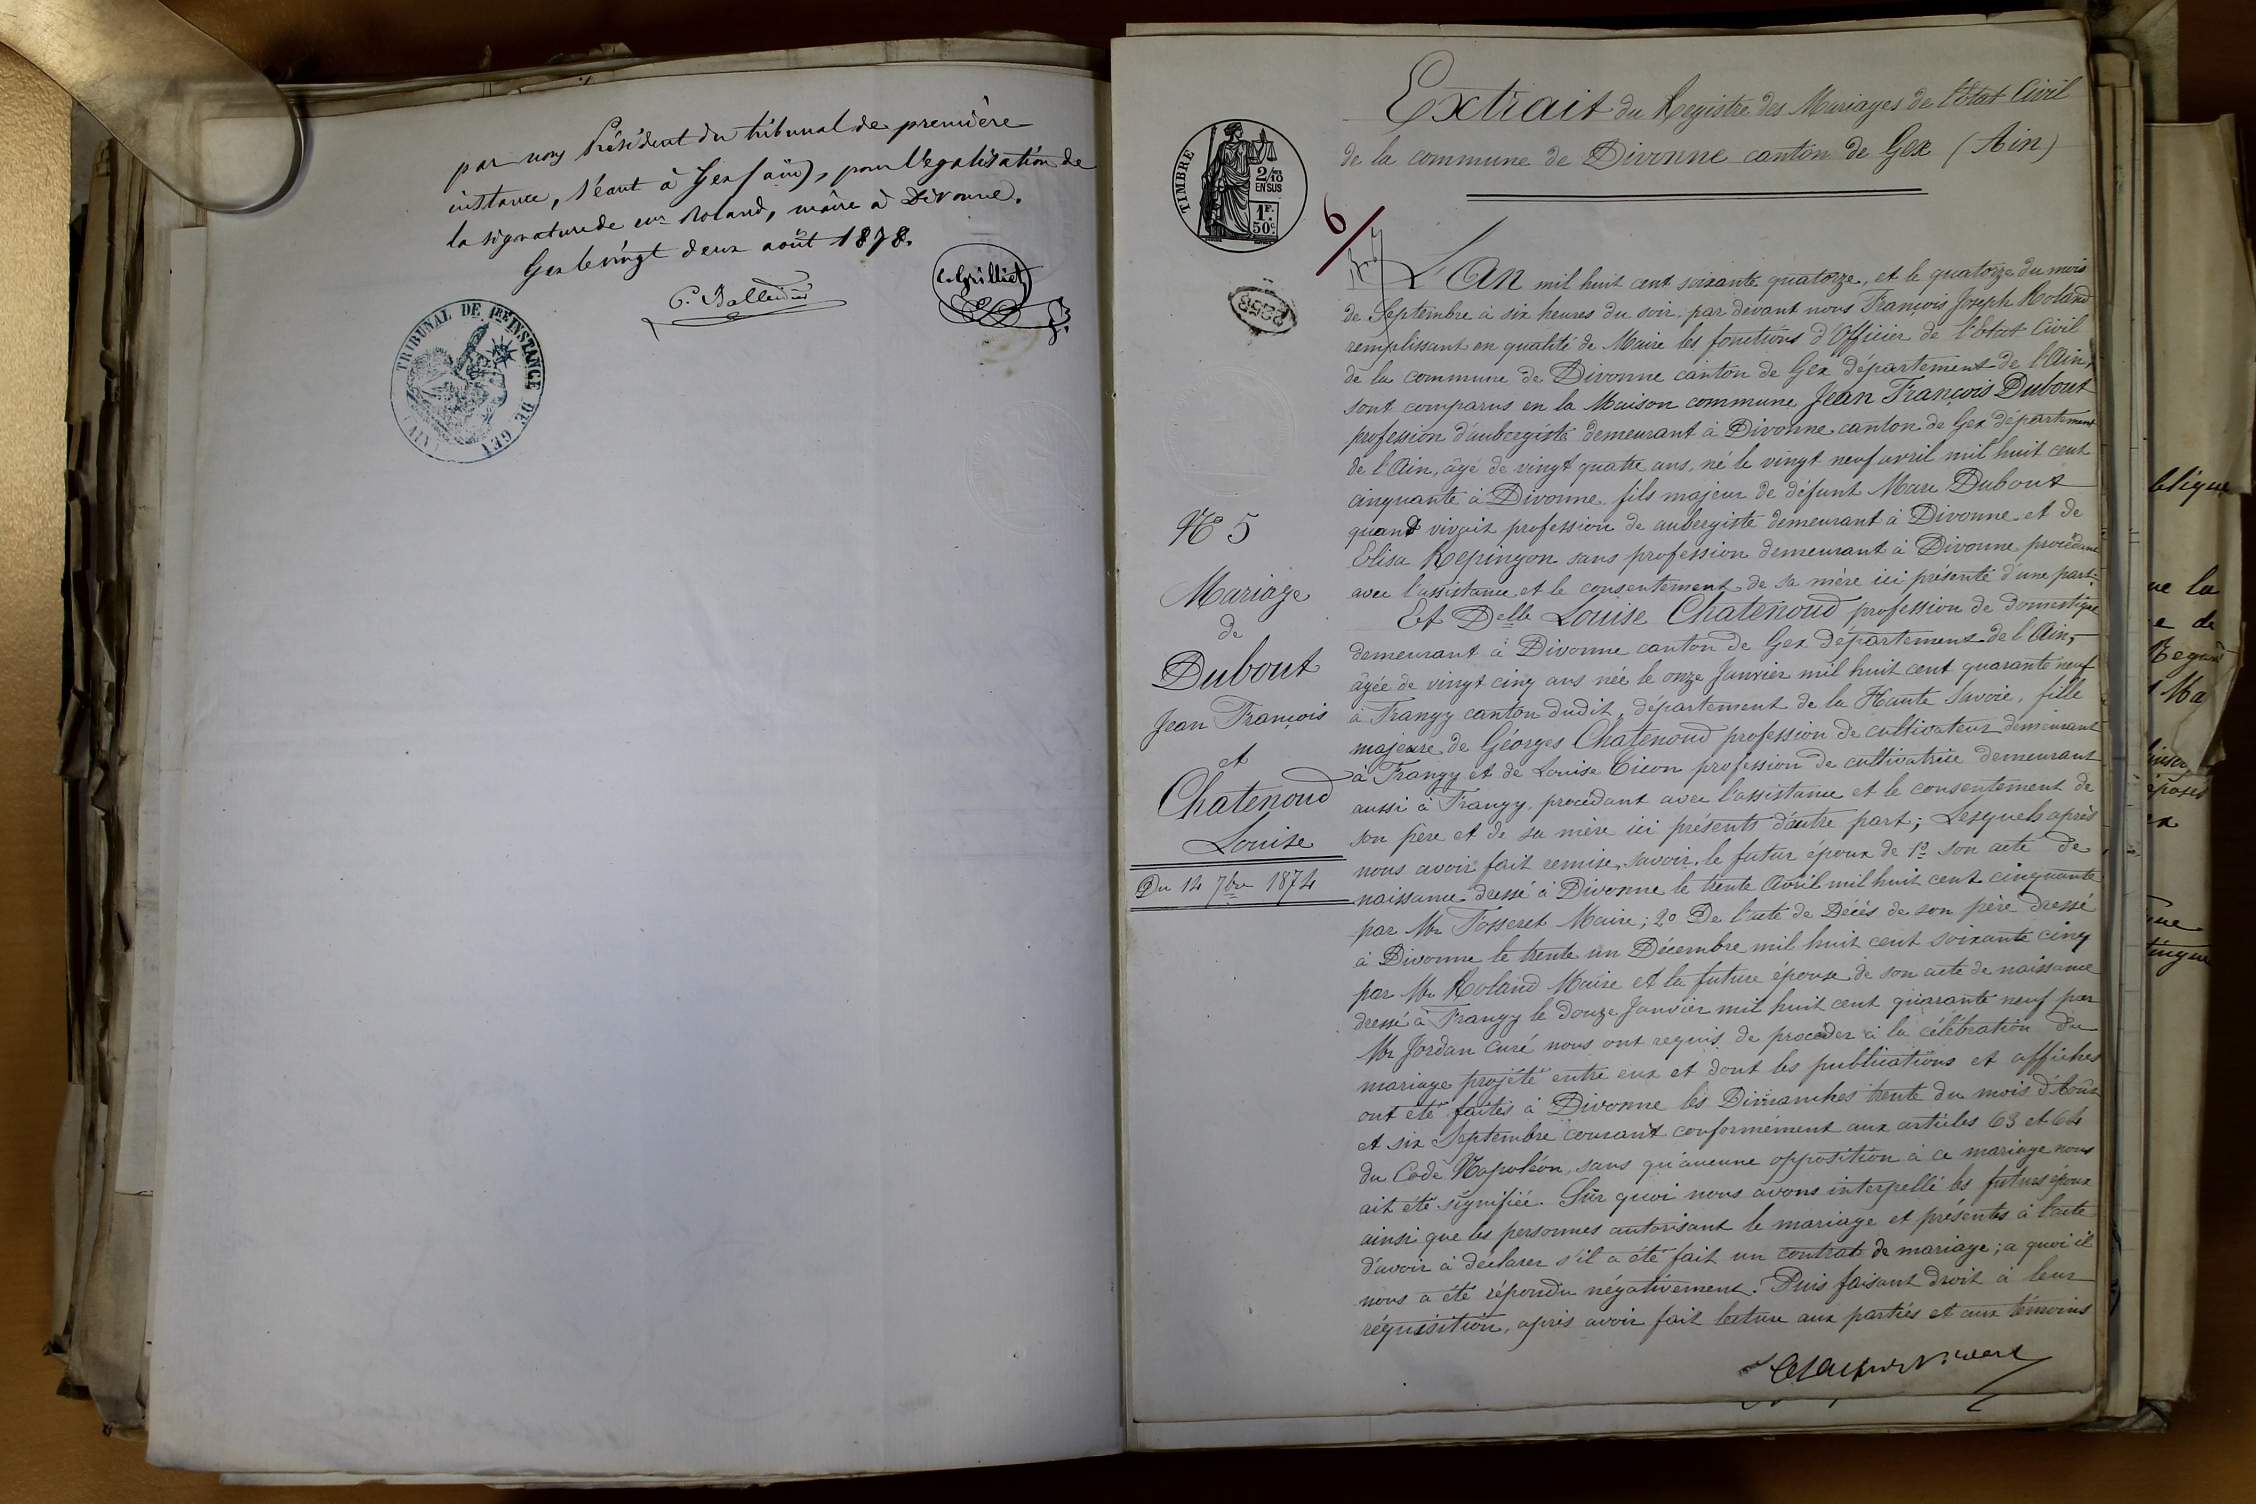 par nous Président du tribunal de première
instance, séant à Gex (ain), pour légalisation de
la signature de mr Roland, maire à Divonne.
Gex le vingt deux août 1878.
TRIBUNAL DE 1ERE INSTANCE DE GEX (AIN)
Extrait du Registre des Mariages de l'Etat Civil
de la commune de Divonne canton de Gex (Ain)
TIMBRE
2/10
EN SUS
1F.
50c
6
L'An mil huit cent soixante quatorze, et le quatorze du mois
de Septembre à six heures du soir, par devant nous François Joseph Roland
remplissant en qualité de Maire les fonctions d'Officier de l'Etat Civil
de la commune de Divonne canton de Gex département de l'Ain,
sont comparus en la Maison commune Jean François Dubout
profession d'aubergiste demeurant à Divonne canton de Gex département
de l'Ain, âgé de vingt quatre ans, né le vingt neuf avril mil huit cent
cinquante à Divonne fils majeur de défunt Marc Dubout
quand vivait profession de aubergiste demeurant à Divonne et de
Elisa Repingon sans profession demeurant à Divonne procédant
avec l'assistance et le consentement de sa mère ici présente d'une part
Et Delle Louise Chatenoud profession de domestique
demeurant à Divonne canton de Gex département de l'Ain,
âgée de vingt cinq ans née le onze Janvier mil huit cent quarante neuf
à Frangy canton dudit, département de la Haute Savoie, fille
majeure de Géorges Chatenoud profession de cultivateur demeurant
à Frangy et de Louise profession de cultivatrice demeurant
aussi à Frangy, procédant avec l'assistance et le consentement de
son père et de sa mère ici présents d'autre part; Lesquels après
nous avoir fait remise, savoir, le futur époux de 1º son acte de
naissance dressé à Divonne le trente Avril mil huit cent cinquante
par Mr Maire; 2º De l'acte de Décès de son père dressé
à Divonne le trente un Décembre mil huit cent soixante cinq
par Mr Roland Maire et la future épouse de son acte de naissance
dressé à Frangy le douze Janvier mil huit cent quarante neuf par
Mr Jordan curé nous ont requis de procéder à la célébration du
mariage projété entre eux et dont les publications et affiches
ont été faites à Divonne les Dimanches trente du mois d'Août
et six Septembre courant conformément aux articles 63 et 64
du Code Napoléon, sans qu'aucune opposition à ce mariage nous
ait été signifiée. Sur quoi nous avons interpellé les futurs époux
ainsi que les personnes autorisant le mariage et présentes à l'acte
d'avoir à déclarer s'il a été fait un contrat de mariage; a quoi il
nous a été répondu négativement. Puis faisant droit à leur
réquisition, après avoir fait lecture aux parties et aux témoins
No 5
Mariage
de
Dubout
Jean François
et
Chatenoud
Louise
Du 14 7bre 1874